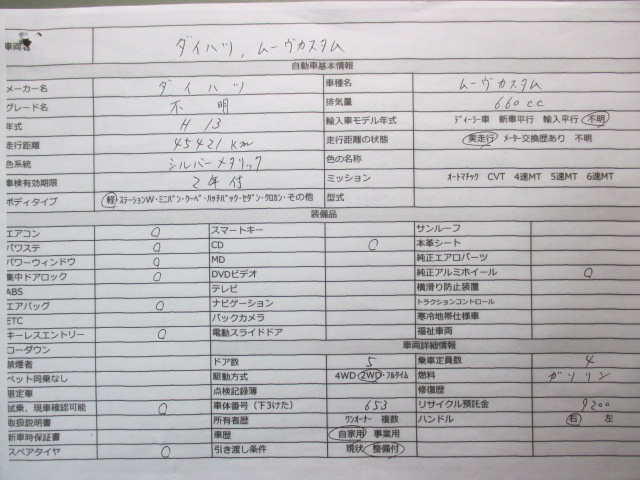 車両名 ダイハツ, ムーヴカスタム
自動車基本情報
メーカー名 ダイハツ 車種名 ムーヴカスタム
グレード名 不明 排気量 660cc
年式 H13 輸入車モデル年式 ディーラー車 新車平行 輸入平行 不明
走行距離 45421Km 走行距離の状態 実走行 メーター交換歴あり 不明
色系統 シルバーメタリック 色の名称
車検有効期限 2年付 ミッション オートマチック CVT 4速MT 5速MT 6速MT
ボディタイプ 軽・ステーションW・ミニバン・クーペ・ハッチバック・セダン・クロカン・その他 型式
装備品
エアコン ○ スマートキー サンルーフ
パワステ ○ CD ○ 本革シート
パワーウィンドウ ○ MD 純正エアロパーツ
集中ドアロック ○ DVDビデオ 純正アルミホイール ○
ABS テレビ 横滑り防止装置
エアバッグ ○ ナビゲーション トラクションコントロール
ETC バックカメラ 寒冷地帯仕様車
キーレスエントリー ○ 電動スライドドア 福祉車両
ローダウン 車両詳細情報
禁煙者 ドア数 5 乗車定員数 4
ペット同乗なし 駆動方式 4WD・2WD・フルタイム 燃料 ガソリン
限定車 点検記録簿 修復歴
試乗、現車確認可能 ○ 車体番号（下3けた） 653 リサイクル預託金 9200
取扱説明書 所有者歴 ワンオーナー 複数 ハンドル 右 左
新車時保証書 車歴 自家用 事業用
スペアタイヤ ○ 引き渡し条件 現状 整備付